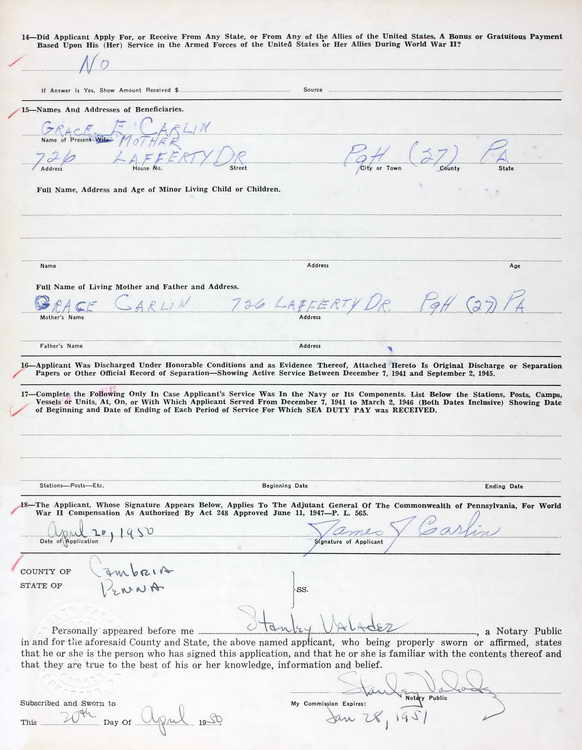 14—Did Applicant Apply For, or Receive From Any State, or From Any of the Allies of the United States, A Bonus or Gratuitous Payment
Based Upon His (Her) Service in the Armed Forces of the United States or Her Allies During World War II?
No
If Answer is Yes, Show Amount Received $ Source
15—Names And Addresses of Beneficiaries.
GRACE E. CARLIN
Name of Present Wife MOTHER
726 LAFFERTY DR PgH (27) PA
Address House No. Street City or Town County State
Full Name, Address and Age of Minor Living Child or Children.
Name Address Age
Full Name of Living Mother and Father and Address.
GRACE CARLIN 726 LAFFERTY DR. PgH (27) PA
Mother's Name Address
Father's Name Address
16—Applicant Was Discharged Under Honorable Conditions and as Evidence Thereof, Attached Hereto Is Original Discharge or Separation
Papers or Other Official Record of Separation—Showing Active Service Between December 7, 1941 and September 2, 1945.
17—Complete the Following Only In Case Applicant's Service Was In the Navy or Its Components. List Below the Stations, Posts, Camps,
Vessels or Units, At, On, or With Which Applicant Served From December 7, 1941 to March 2, 1946 (Both Dates Inclusive) Showing Date
of Beginning and Date of Ending of Each Period of Service For Which SEA DUTY PAY was RECEIVED.
Stations—Posts—Etc. Beginning Date Ending Date
18—The Applicant, Whose Signature Appears Below, Applies To The Adjutant General Of The Commonwealth of Pennsylvania, For World
War II Compensation As Authorized By Act 248 Approved June 11, 1947—P. L. 565.
April 20, 1950 James J Carlin
Date of Application Signature of Applicant
COUNTY OF Cambria
STATE OF PENNA SS.
Personally appeared before me Stanley Valadez, a Notary Public
in and for the aforesaid County and State, the above named applicant, who being properly sworn or affirmed, states
that he or she is the person who has signed this application, and that he or she is familiar with the contents thereof and
that they are true to the best of his or her knowledge, information and belief.
Stanley Valadez
Notary Public
Subscribed and Sworn to My Commission Expires:
This 20th Day Of April 1950 Jan 28, 1951